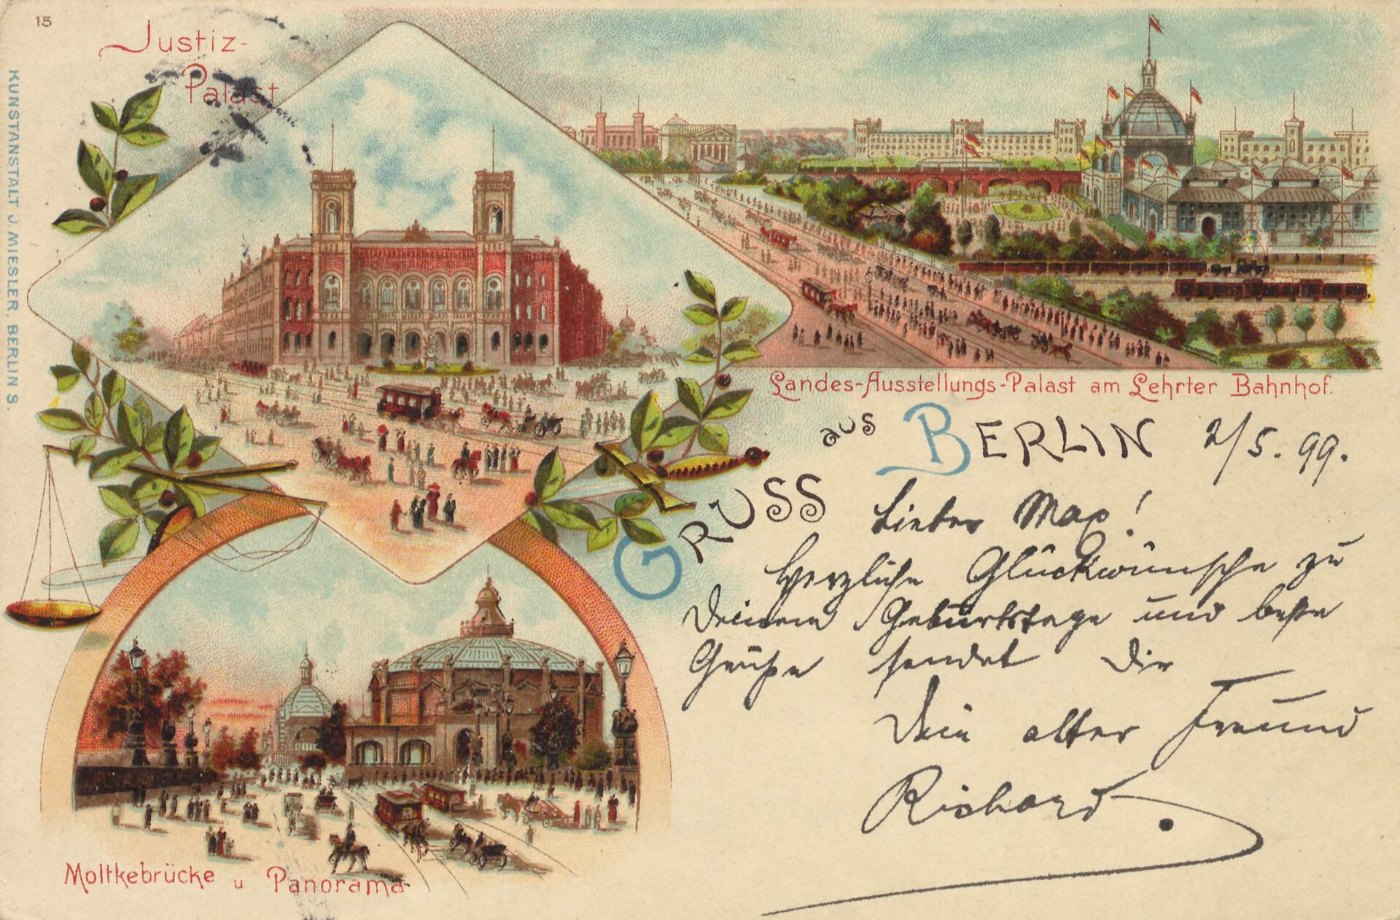 15
Justiz-
Palast
KUNSTANSTALT J. MIESLER, BERLIN S.
Landes-Ausstellungs-Palast am Lehrter Bahnhof.
GRUSS aus BERLIN 2/5.99.
Lieber Max!
Herzliche Glückwünsche zu
Deinem Geburtstage und beste
Grüße sendet Dir
Dein alter Freund
Richard.
Moltkebrücke u Panorama